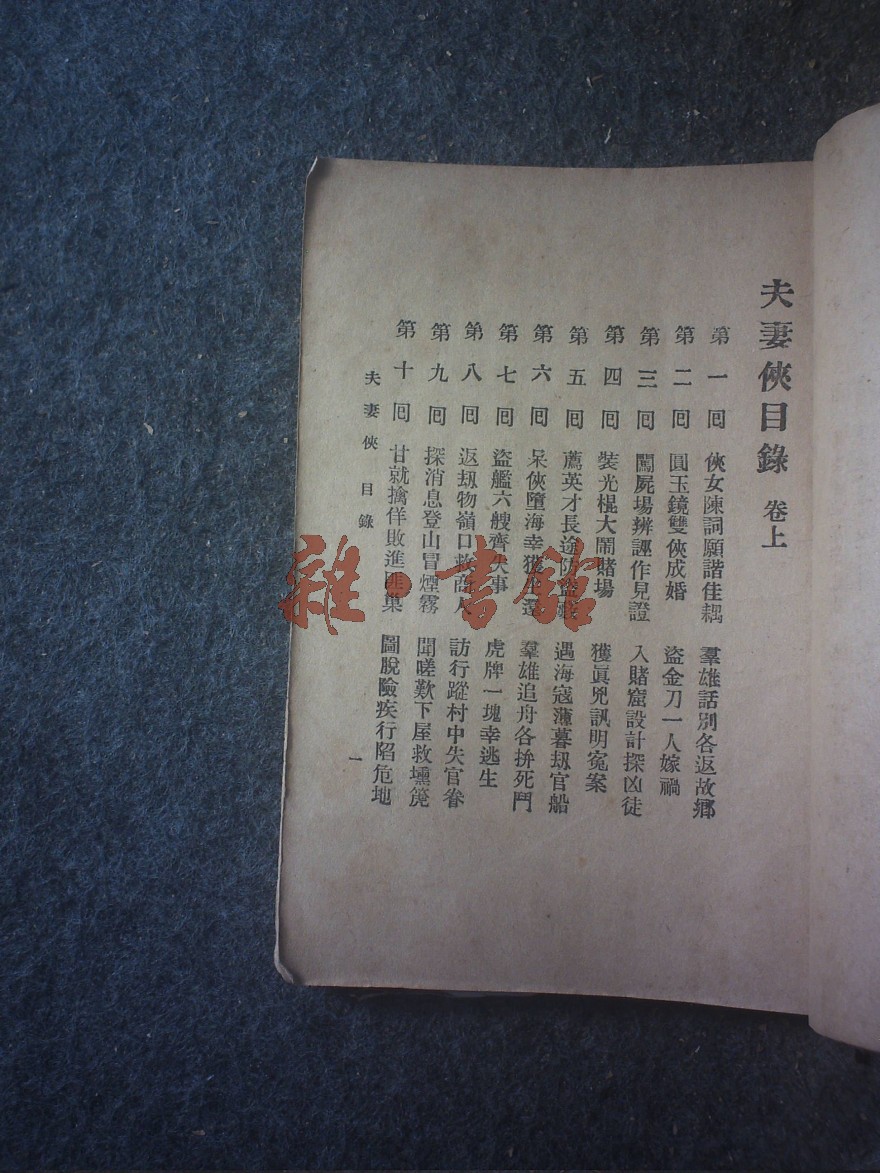 夫妻俠目錄 卷上
第一囘 俠女陳詞願諧佳耦 羣雄話別各返故鄉
第二囘 圓玉鏡雙俠成婚 盜金刀一人嫁禍
第三囘 闖屍場辨誣作見證 入賭窟設計探凶徒
第四囘 裝光棍大鬧賭場 獲眞兇訊明寃案
第五囘 薦英才長途防盜 遇海寇薄暮刼官船
第六囘 呆俠墮海幸獲生還 羣雄追舟各拚死鬥
第七囘 盜艦六艘齊失事 虎牌一塊幸逃生
第八囘 返刼物嶺口救商人 訪行蹤村中失官眷
第九囘 探消息登山冒煙霧 聞嗟歎下屋救壎箎
第十囘 甘就擒佯敗進匪巢 圖脫險疾行陷危地
夫妻俠 目錄
一
雜·書館